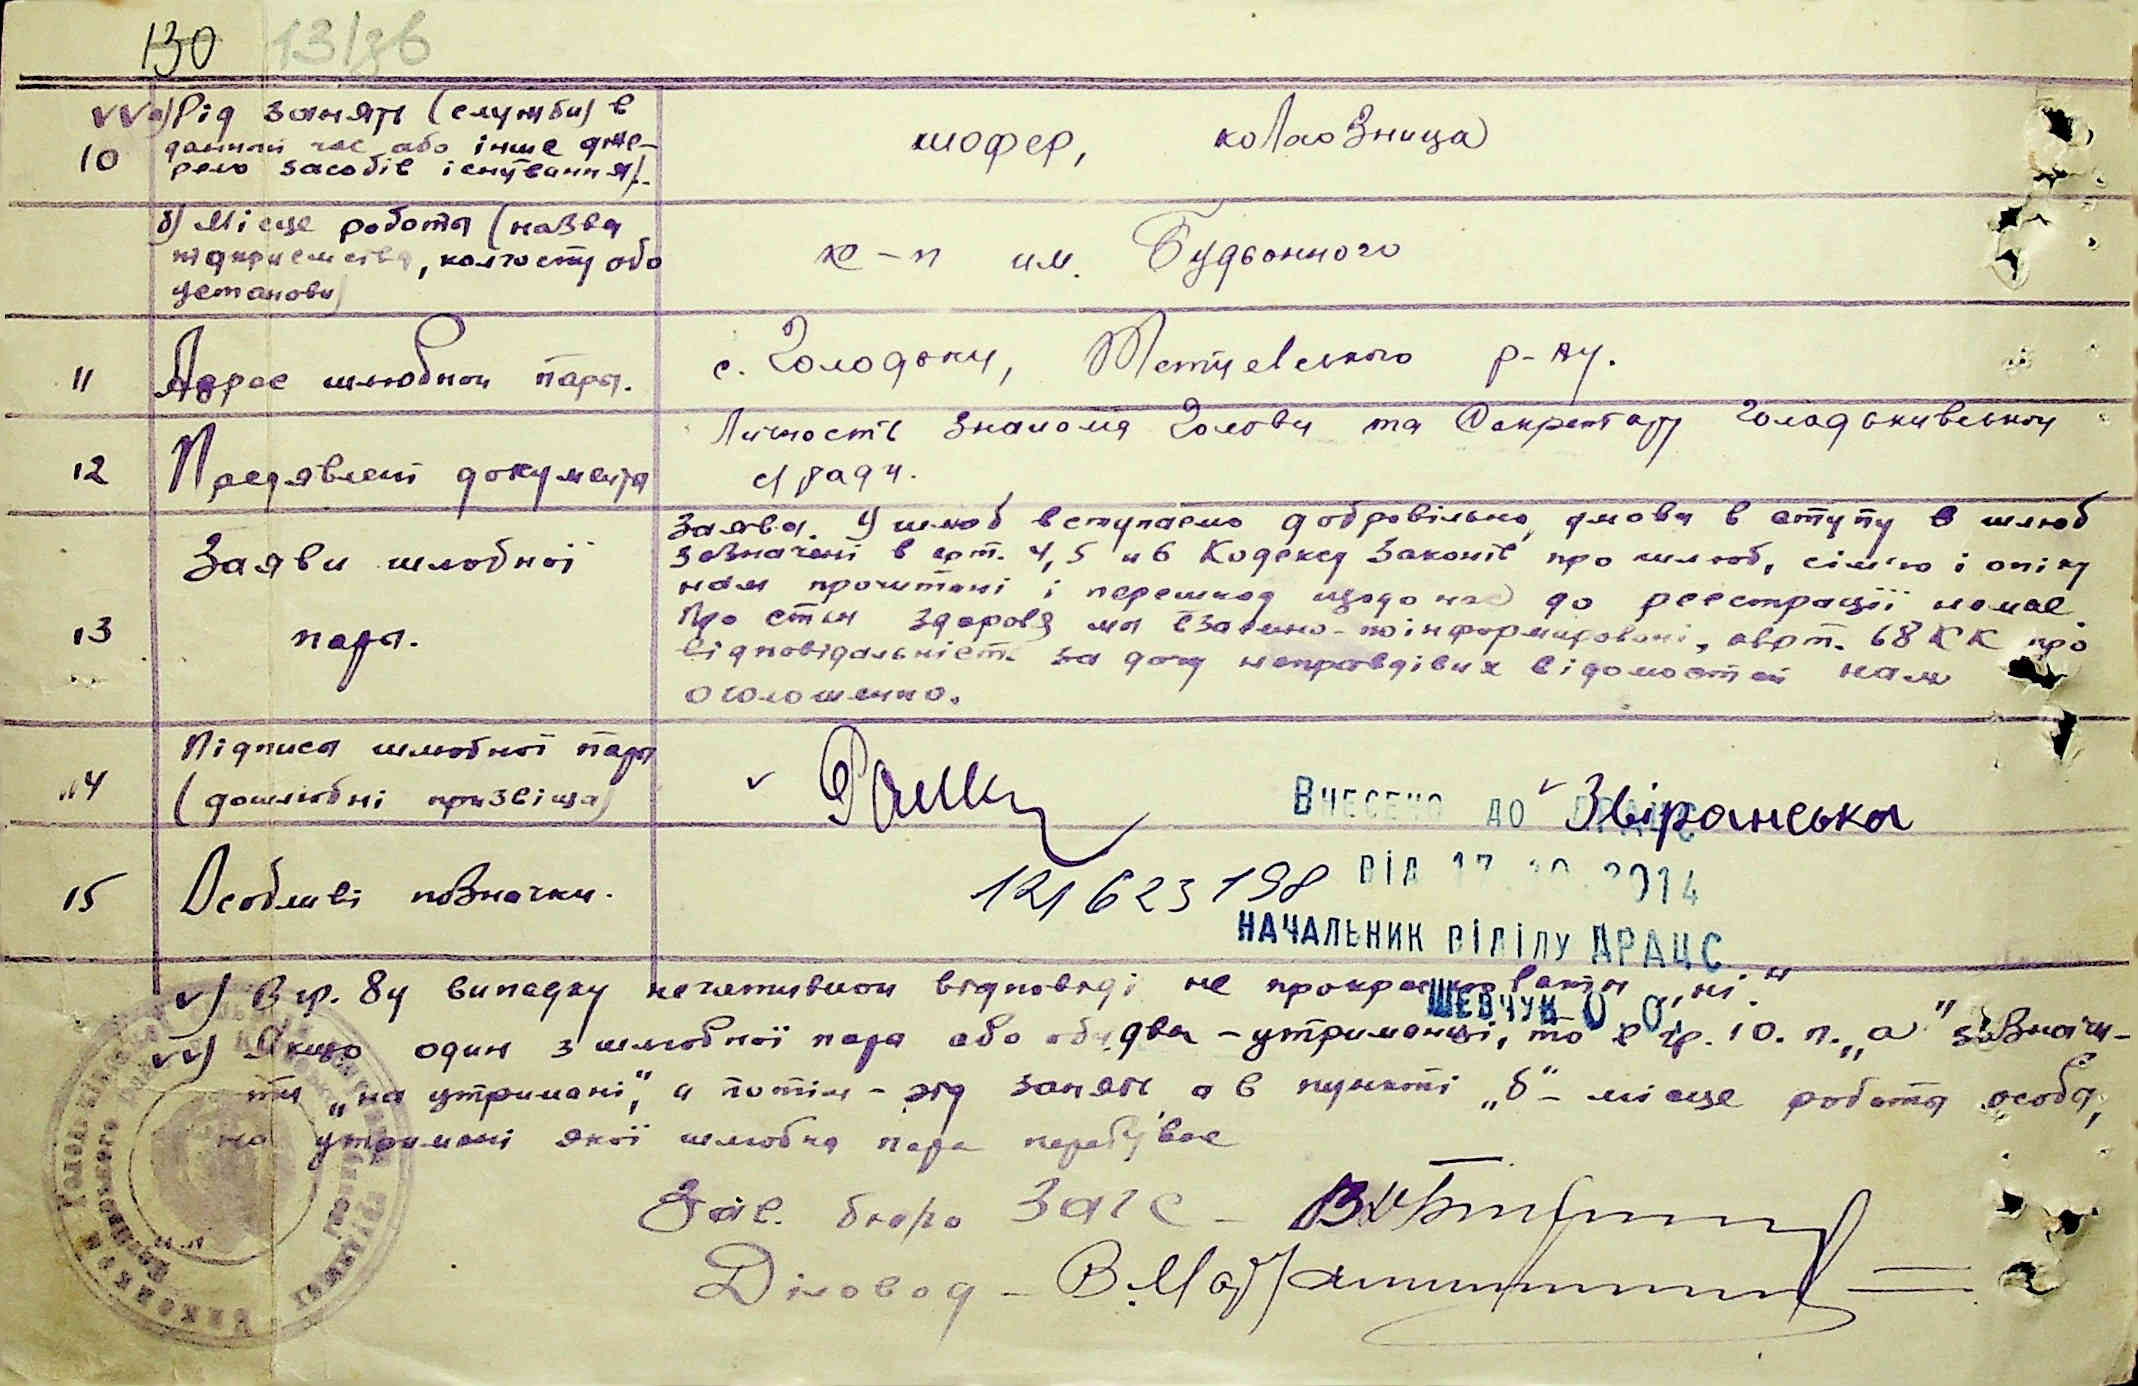 130 13/зв
vv а) Рід занять (служби) в
10 данний час або інше дже-
рело засобів існування).
шофер, колгозница
б) Місце работы (назва
підприємства, колгоспу або
установи)
к-п им. Будьонного
11 Адрес шлюбной пары.
с. Голодьки, Тетиевського р-ну.
12 Предявлені документы
Личность знакома Голови та Секретару Голодькивськой
с/ради.
13 Заяви шлюбної
пары.
Заява. У шлюб вступаемо добровільно, умови в ступу в шлюб
зазначені в арт. 4, 5 и 6 Кодексу Законів про шлюб, сім'ю і опіку
нам прочитані і перешкод щодо нас до реєстрації немає.
Про стан здоровя ми взаемно-поінформировані, а арт. 68 КК про
відповідальність за дачу неправдівих відомостей нам
оголошенно.
14 Підписи шлюбної пары
(дошлюбні призвіща)
v v Звіранська
ВНЕСЕНО ДО ДРАЦС
15 Особливі позначки.
121623198 ВІД 17.10.2014
НАЧАЛЬНИК ВІДІЛУ ДРАЦС
ШЕВЧУК О О
v) В гр. 8 у випадку негативной відповіді не "ні."
vv) Якщо один з шлюбної пары або обидва - утриманці, то в гр. 10. п. "а" зазначи-
ти "на утримані," а потім - рід занять а в пункті "б" - місце работы особы,
на утримані якої шлюбна пара перебуває
Зав. бюро Загс -
Діловод -